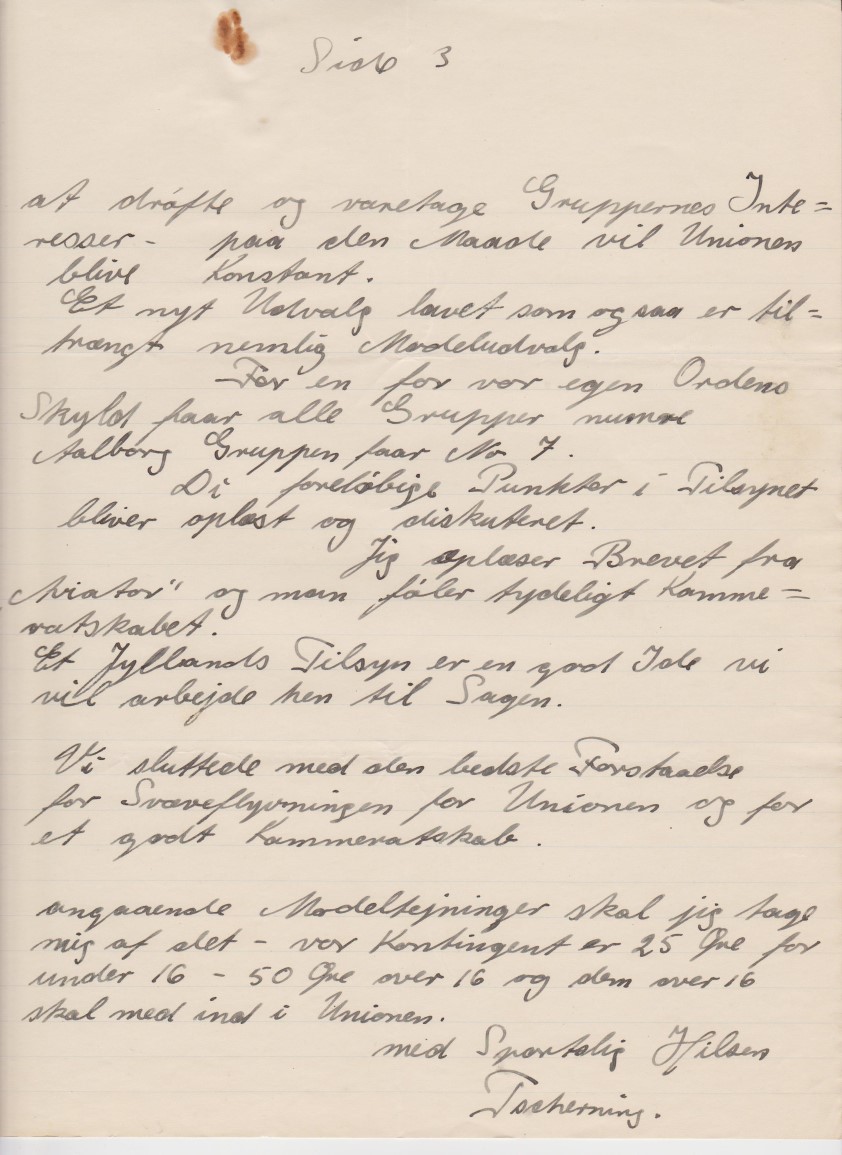 Side 3
at drøfte og varetage Gruppernes Inte=
resser - paa den Maade vil Unionen
blive Konstant.
Et nyt Udvalg lavet som ogsaa er til=
trængt nemlig Modeludvalg.
For en for vor egen Ordens
Skyld faar alle Grupper numre
Aalborg Gruppen faar No 7.
Di foreløbige Punkter i Tilsynet
bliver oplæst og diskuteret.
Jig oplæser Brevet fra
„Aviator" og man føler tydeligt Kamme=
ratskabet.
Et Jyllands Tilsyn er en god Ide vi
vil arbejde hen til Sagen.
Vi sluttede med den bedste Forstaaelse
for Svæveflyvningen for Unionen og for
et godt Kammeratskab.
angaaende Modeltejninger skal jig tage
mig af det - vor Kontingent er 25 Øre for
under 16 - 50 Øre over 16 og dem over 16
skal med ind i Unionen.
med Sportslig Hilsen
Tscherning.